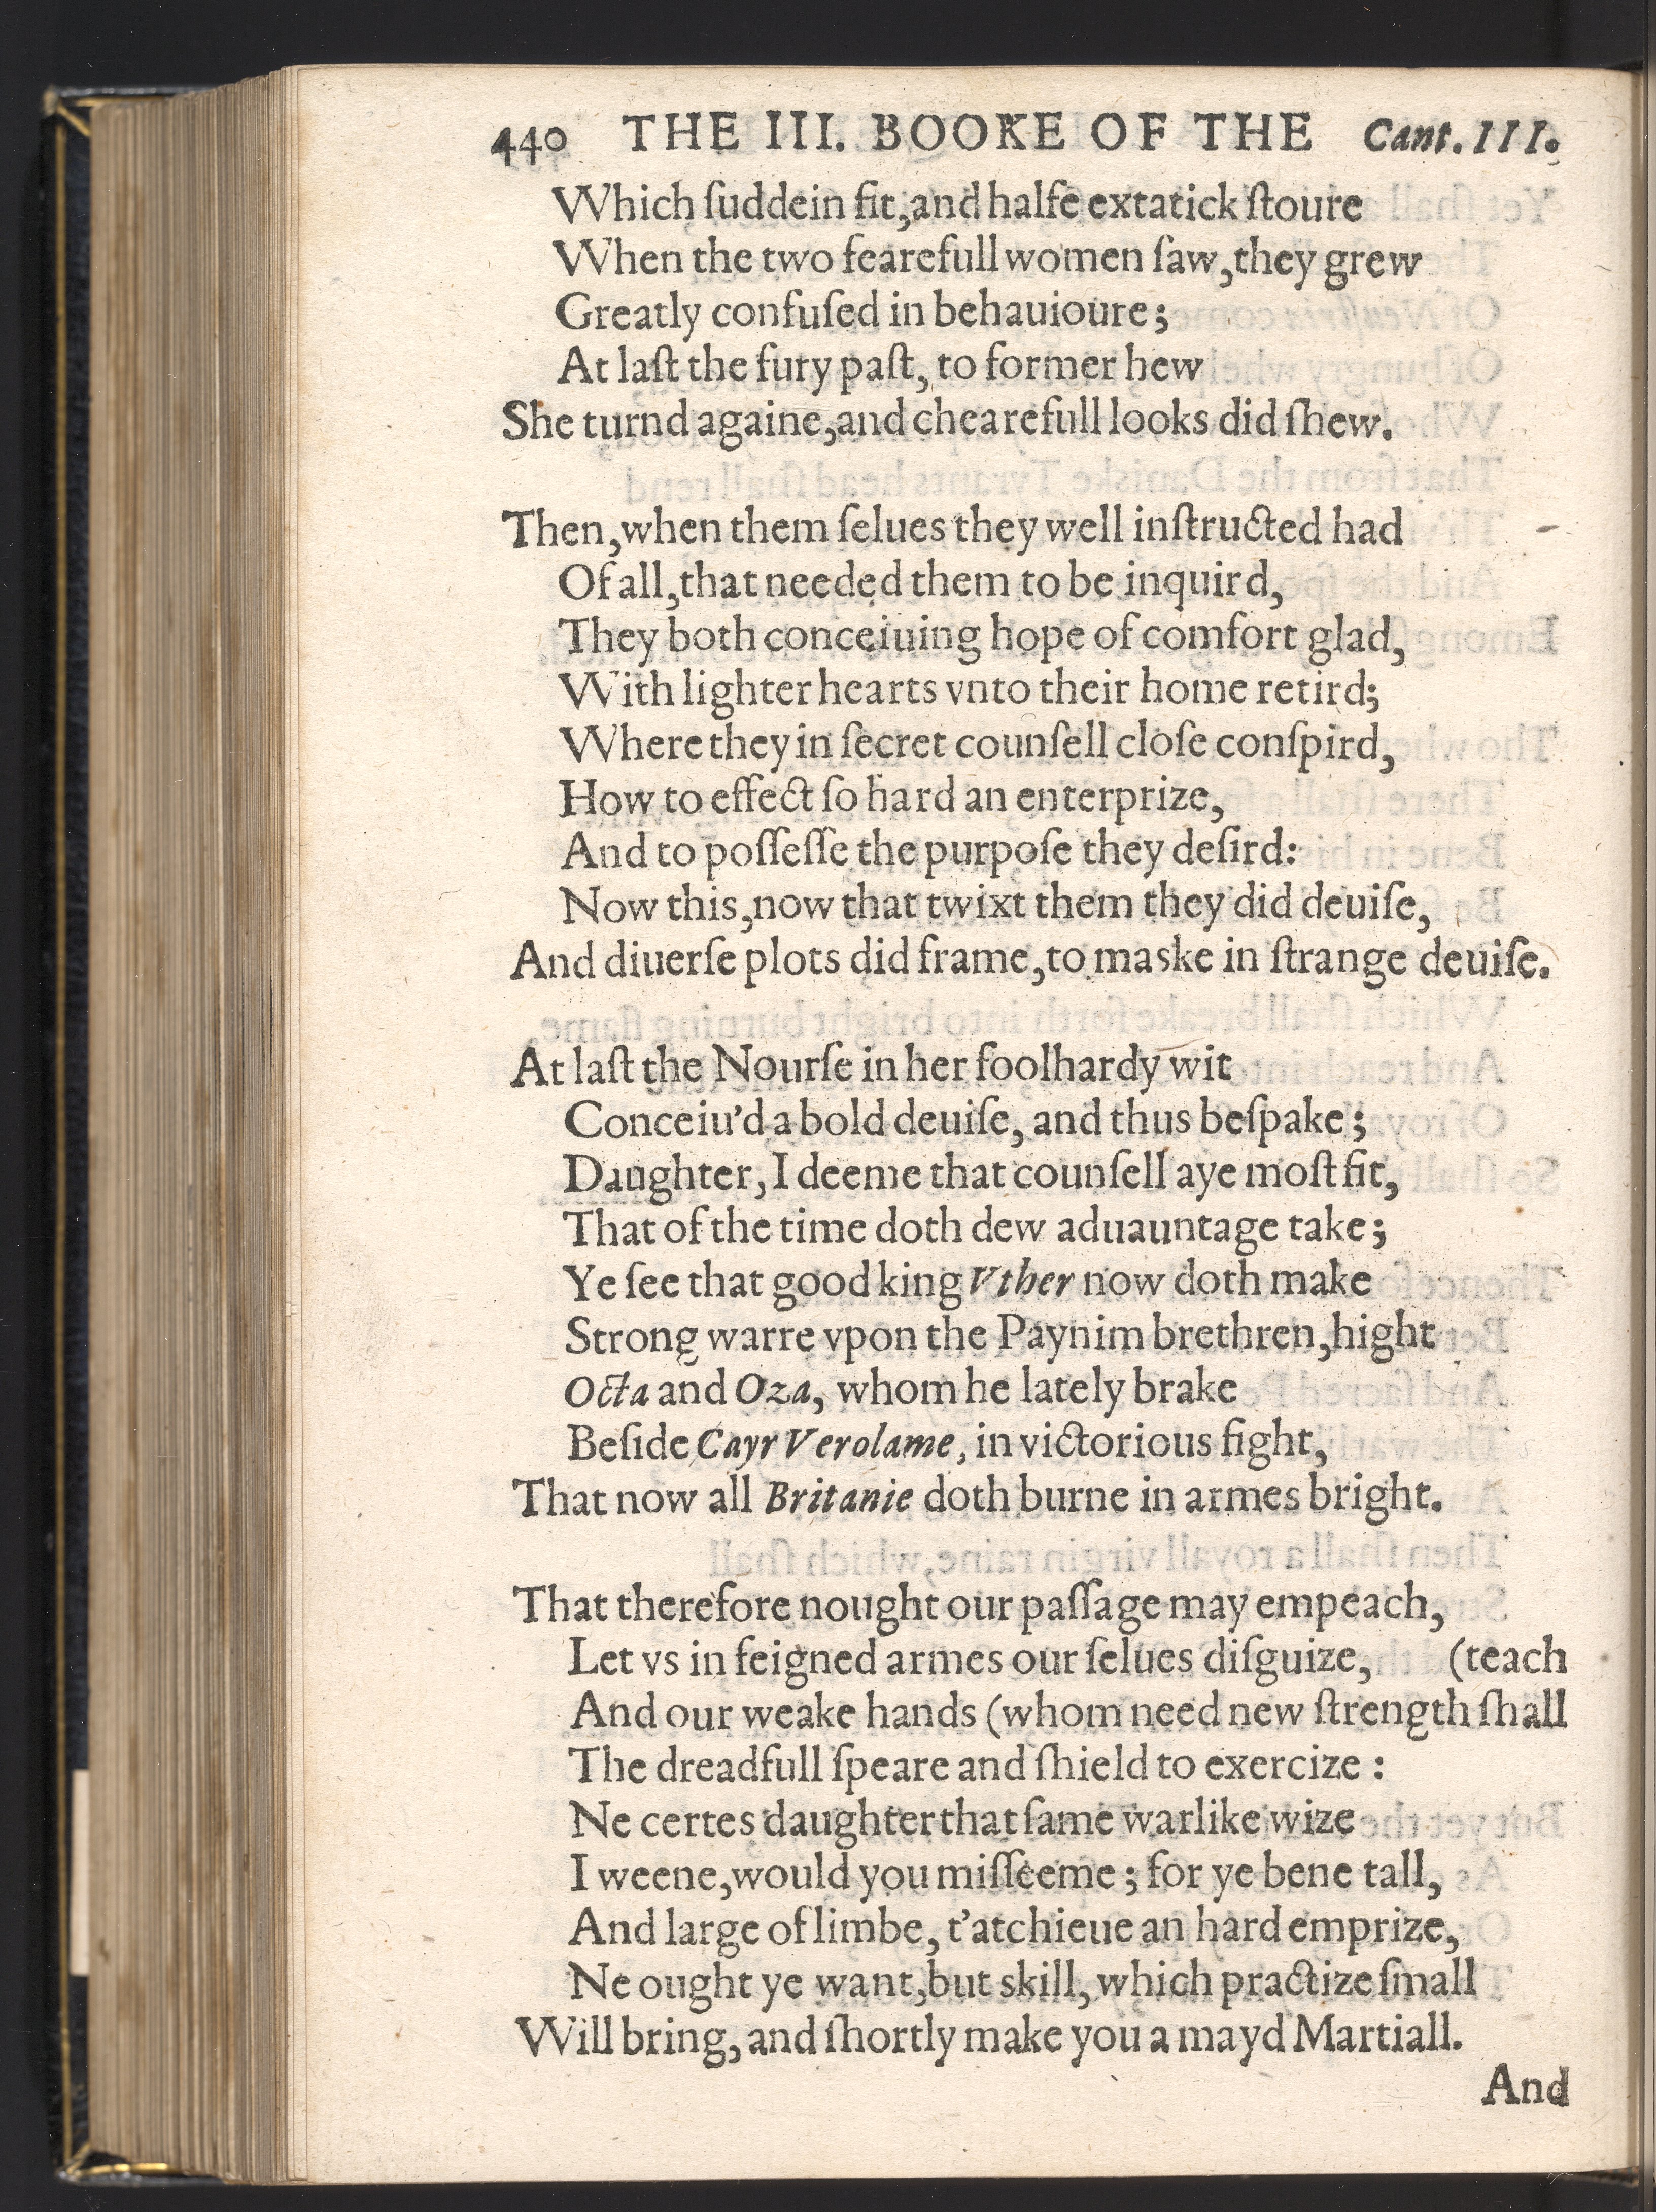 440 THE III. BOOKE OF THE Cant. III.
Which ſuddein fit,and halfe extatick ſtoure
When the two fearefull women ſaw,they grew
Greatly confuſed in behauioure;
At laſt the fury paſt, to former hew
She turnd againe,and chearefull looks did ſhew.
Then,when them ſelues they well inſtructed had
Of all,that needed them to be inquird,
They both conceiuing hope of comfort glad,
With lighter hearts vnto their home retird;
Where they in ſecret counſell cloſe conſpird,
How to effect ſo hard an enterprize,
And to poſſeſſe the purpoſe they deſird:
Now this,now that twixt them they did deuiſe,
And diuerſe plots did frame,to maske in ſtrange deuiſe.
At laſt the Nourſe in her foolhardy wit
Conceiu'd a bold deuiſe, and thus beſpake;
Daughter, I deeme that counſell aye moſt fit,
That of the time doth dew aduauntage take;
Ye ſee that good king Vther now doth make
Strong warre vpon the Paynim brethren,hight
Octa and Oza, whom he lately brake
Beſide Cayr Verolame, in victorious fight,
That now all Britanie doth burne in armes bright.
That therefore nought our paſſage may empeach,
Let vs in feigned armes our ſelues diſguize, (teach
And our weake hands (whom need new ſtrength ſhall
The dreadfull ſpeare and ſhield to exercize :
Ne certes daughter that ſame warlike wize
I weene,would you miſſeeme; for ye bene tall,
And large of limbe, t'atchieue an hard emprize,
Ne ought ye want,but skill, which practize ſmall
Will bring, and ſhortly make you a mayd Martiall.
And